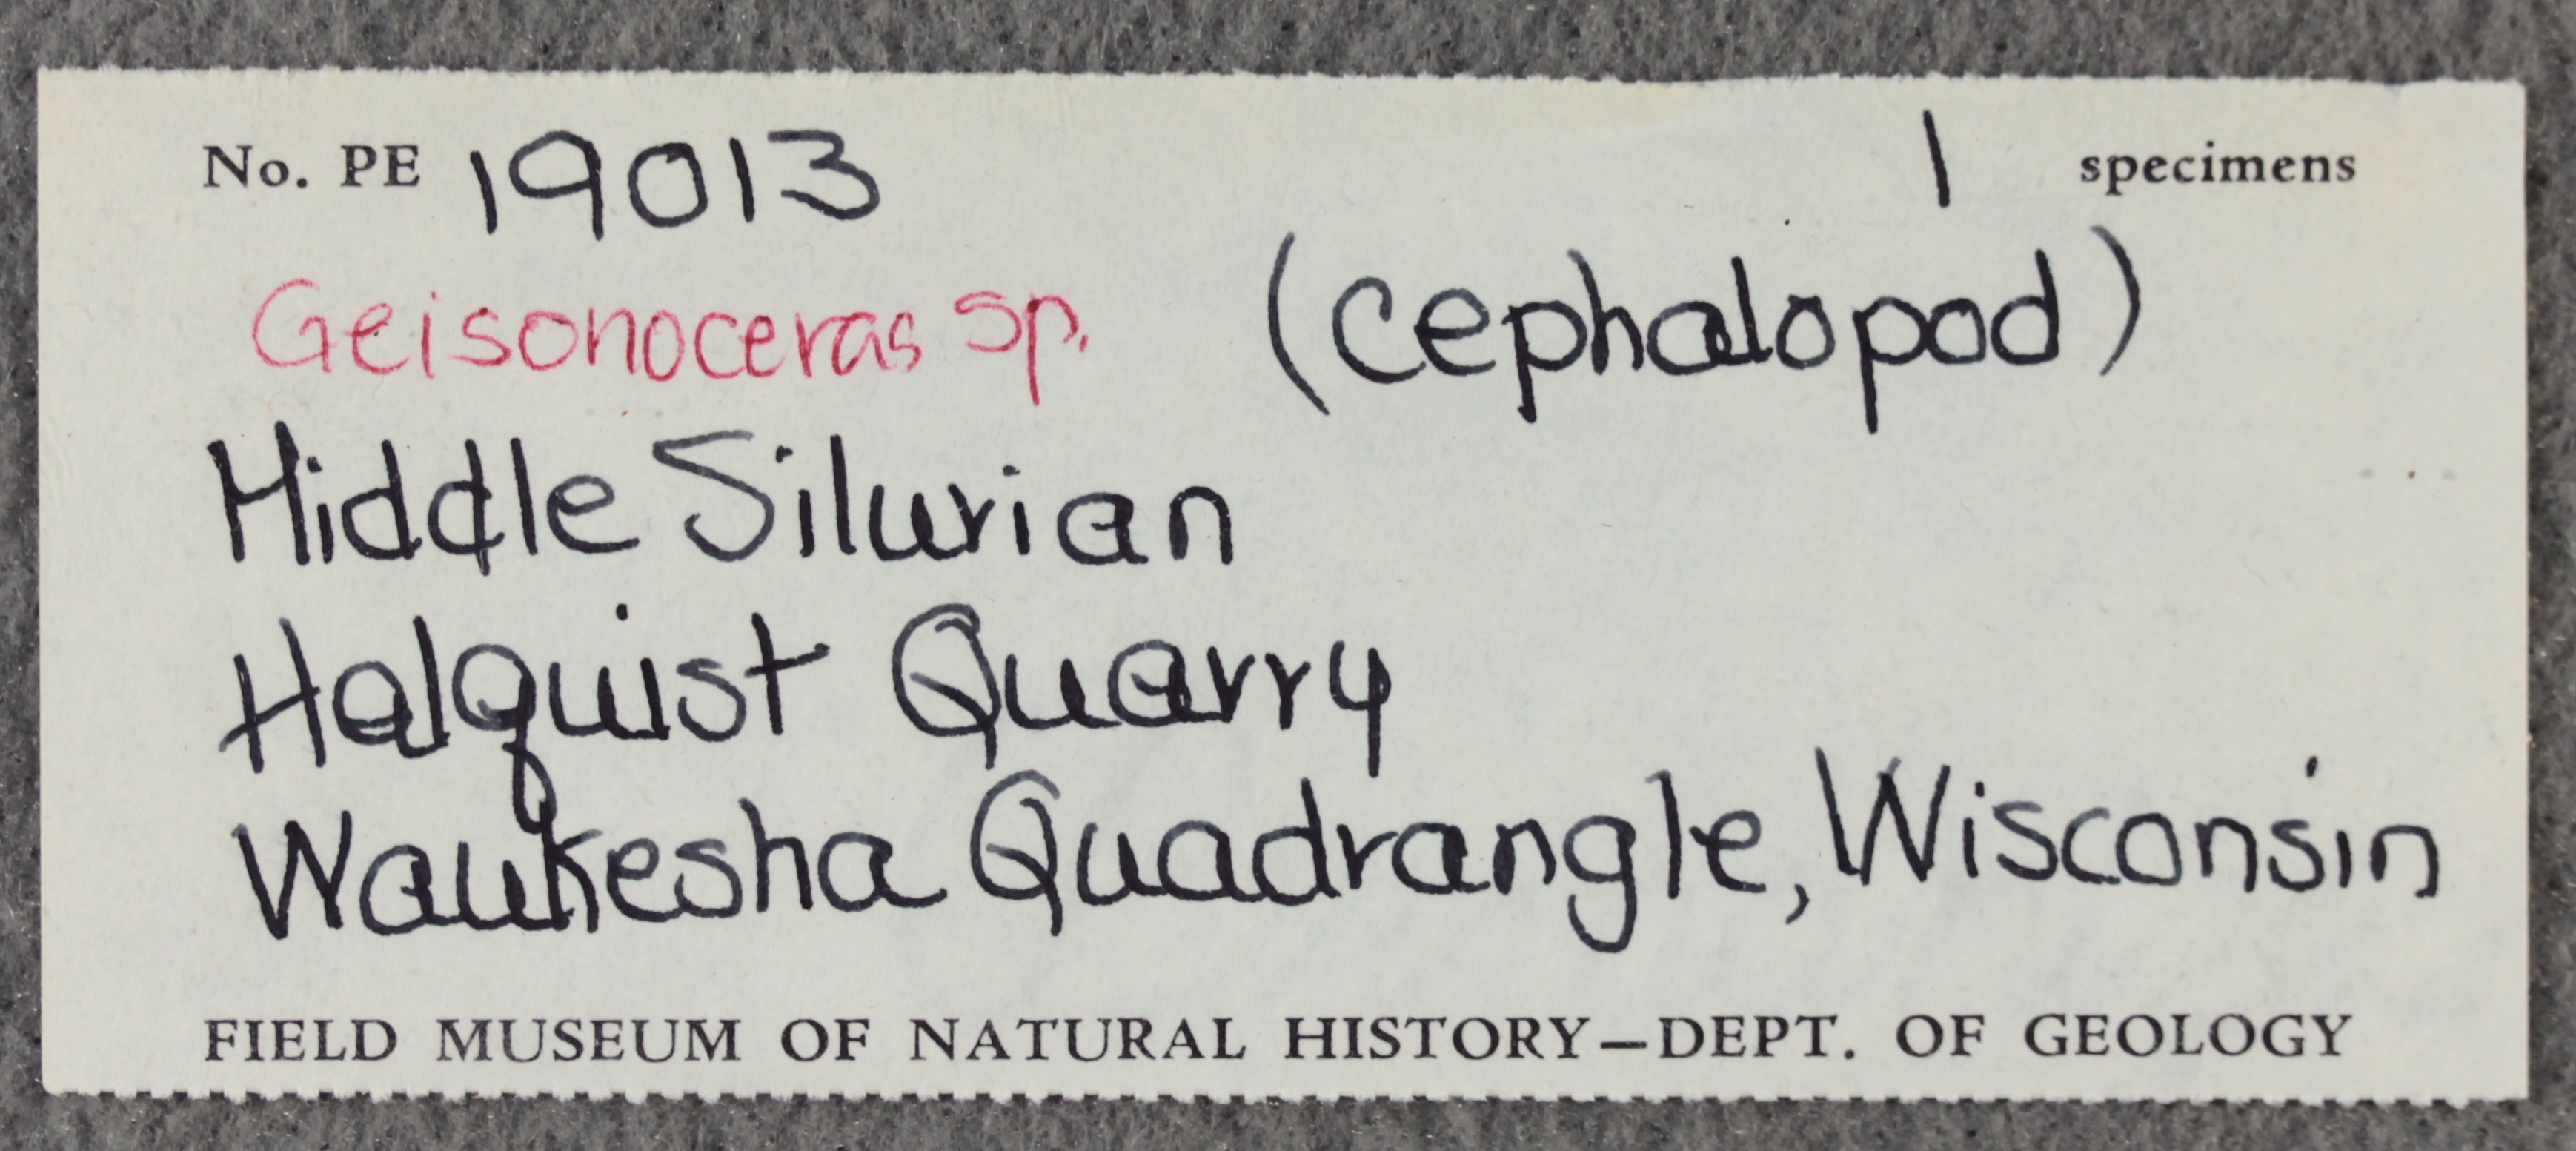 No. PE 19013 1 specimens
Geisonoceras sp. (cephalopod)
Middle Silurian
Halquist Quarry
Waukesha Quadrangle, Wisconsin
FIELD MUSEUM OF NATURAL HISTORY—DEPT. OF GEOLOGY